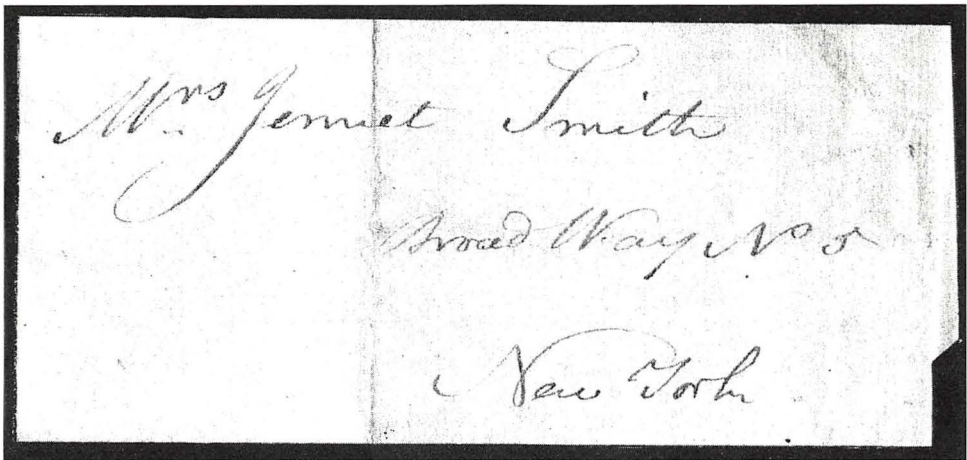 Mrs Jennet Smith
Broad Way No 5
New York